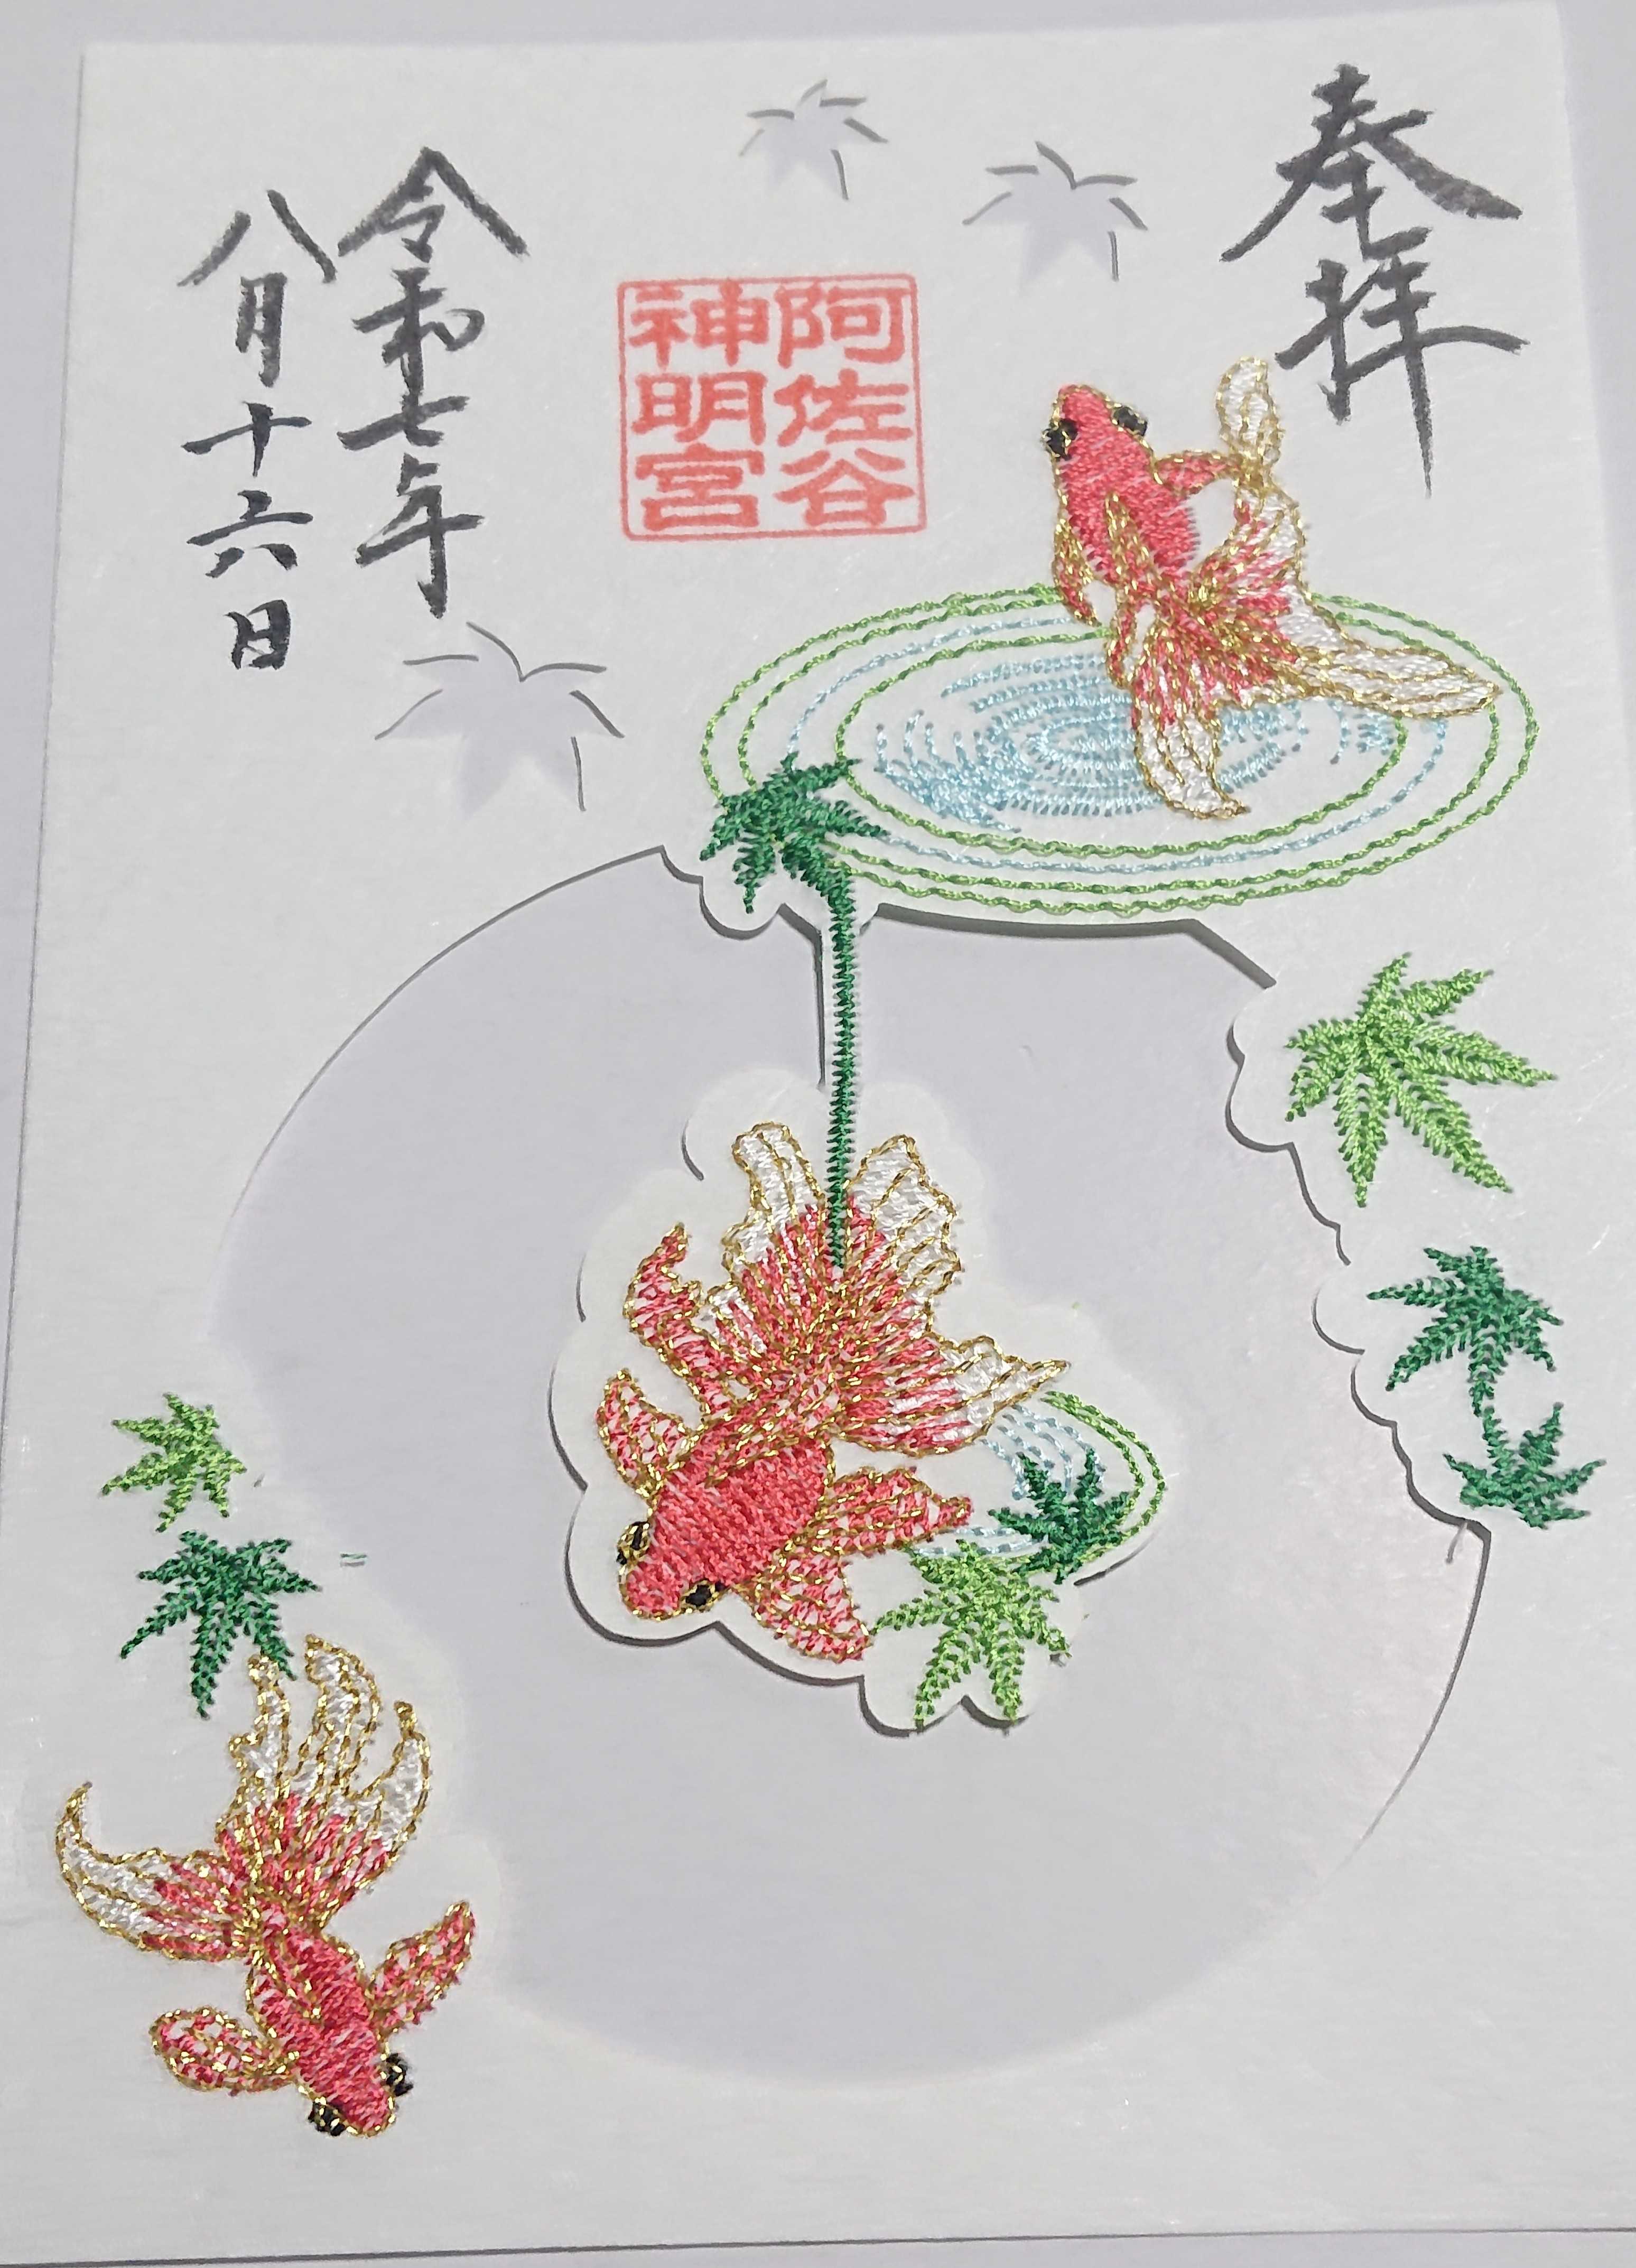 奉拝
阿佐谷
神明宮
令和七年
八月十六日